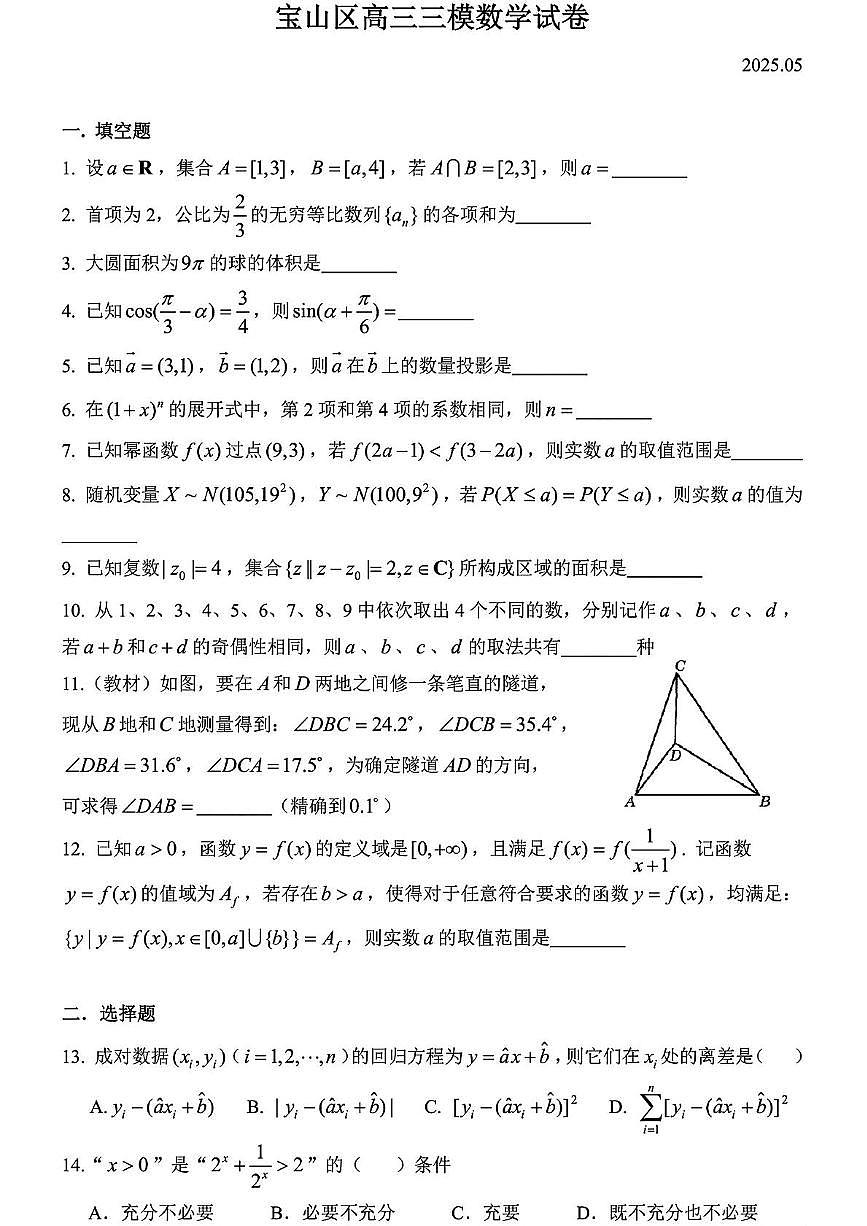 宝山区高三三模数学试卷
2025.05
一. 填空题
1. 设a∈R，集合A=[1,3]，B=[a,4]，若A∩B=[2,3]，则a=______
2. 首项为2，公比为2/3的无穷等比数列{aₙ}的各项和为______
3. 大圆面积为9π的球的体积是______
4. 已知cos(π/3−α)=3/4，则sin(α+π/6)=______
5. 已知a⃗=(3,1)，b⃗=(1,2)，则a⃗在b⃗上的数量投影是______
6. 在(1+x)ⁿ的展开式中，第2项和第4项的系数相同，则n=______
7. 已知幂函数f(x)过点(9,3)，若f(2a−1)<f(3−2a)，则实数a的取值范围是______
8. 随机变量X~N(105,19²)，Y~N(100,9²)，若P(X≤a)=P(Y≤a)，则实数a的值为
______
9. 已知复数|z₀|=4，集合{z||z−z₀|=2,z∈C}所构成区域的面积是______
10. 从1、2、3、4、5、6、7、8、9中依次取出4个不同的数，分别记作a、b、c、d，
若a+b和c+d的奇偶性相同，则a、b、c、d的取法共有______种
11.（教材）如图，要在A和D两地之间修一条笔直的隧道，
现从B地和C地测量得到：∠DBC=24.2°，∠DCB=35.4°，
∠DBA=31.6°，∠DCA=17.5°，为确定隧道AD的方向，
可求得∠DAB=______（精确到0.1°）
C
D
A
B
12. 已知a>0，函数y=f(x)的定义域是[0,+∞)，且满足f(x)=f(1/(x+1))．记函数
y=f(x)的值域为A_f，若存在b>a，使得对于任意符合要求的函数y=f(x)，均满足：
{y|y=f(x),x∈[0,a]∪{b}}=A_f，则实数a的取值范围是______
二．选择题
13. 成对数据(xᵢ,yᵢ)（i=1,2,⋯,n）的回归方程为y=âx+b̂，则它们在xᵢ处的离差是(　　)
A. yᵢ−(âxᵢ+b̂)　B. |yᵢ−(âxᵢ+b̂)|　C. [yᵢ−(âxᵢ+b̂)]²　D. ∑ⁿᵢ₌₁[yᵢ−(âxᵢ+b̂)]²
14. “x>0”是“2ˣ+1/2ˣ>2”的（　　）条件
A．充分不必要　B．必要不充分　C．充要　D．既不充分也不必要